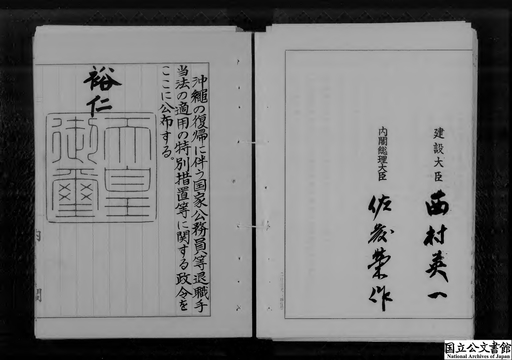 建設大臣
西村英一
内閣総理大臣
佐藤榮作
沖縄の復帰に伴う国家公務員等退職手
当法の適用の特別措置等に関する政令を
ここに公布する。
裕仁
天皇
御璽
内閣
国立公文書館
National Archives of Japan